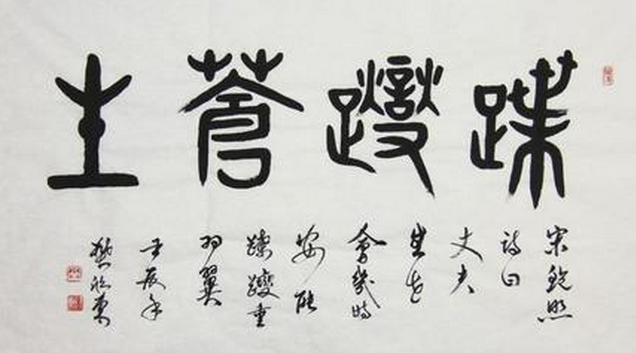 蹀躞蒼土
宋鮑照
詩曰
丈夫
生世
會幾時
安能
蹀躞垂
羽翼
壬辰年